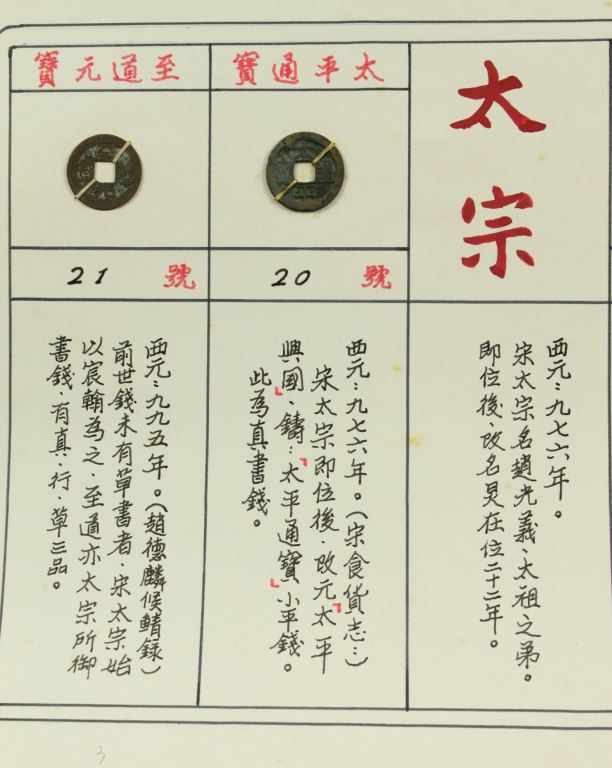 太宗
西元：九七六年。
宋太宗名趙光義、太祖之弟。
即位後、改名炅在位二十二年。
太平通寶
號 20
西元：九七六年。（宋食貨志：）
宋太宗即位後、改元「太平
興國」、鑄：「太平通寶」小平錢。
此為真書錢。
至道元寶
號 21
西元：九九五年。（趙德麟候鯖錄）
前世錢未有草書者、宋太宗始
以宸翰為之、至道亦太宗所御
書錢、有真、行、草三品。
3